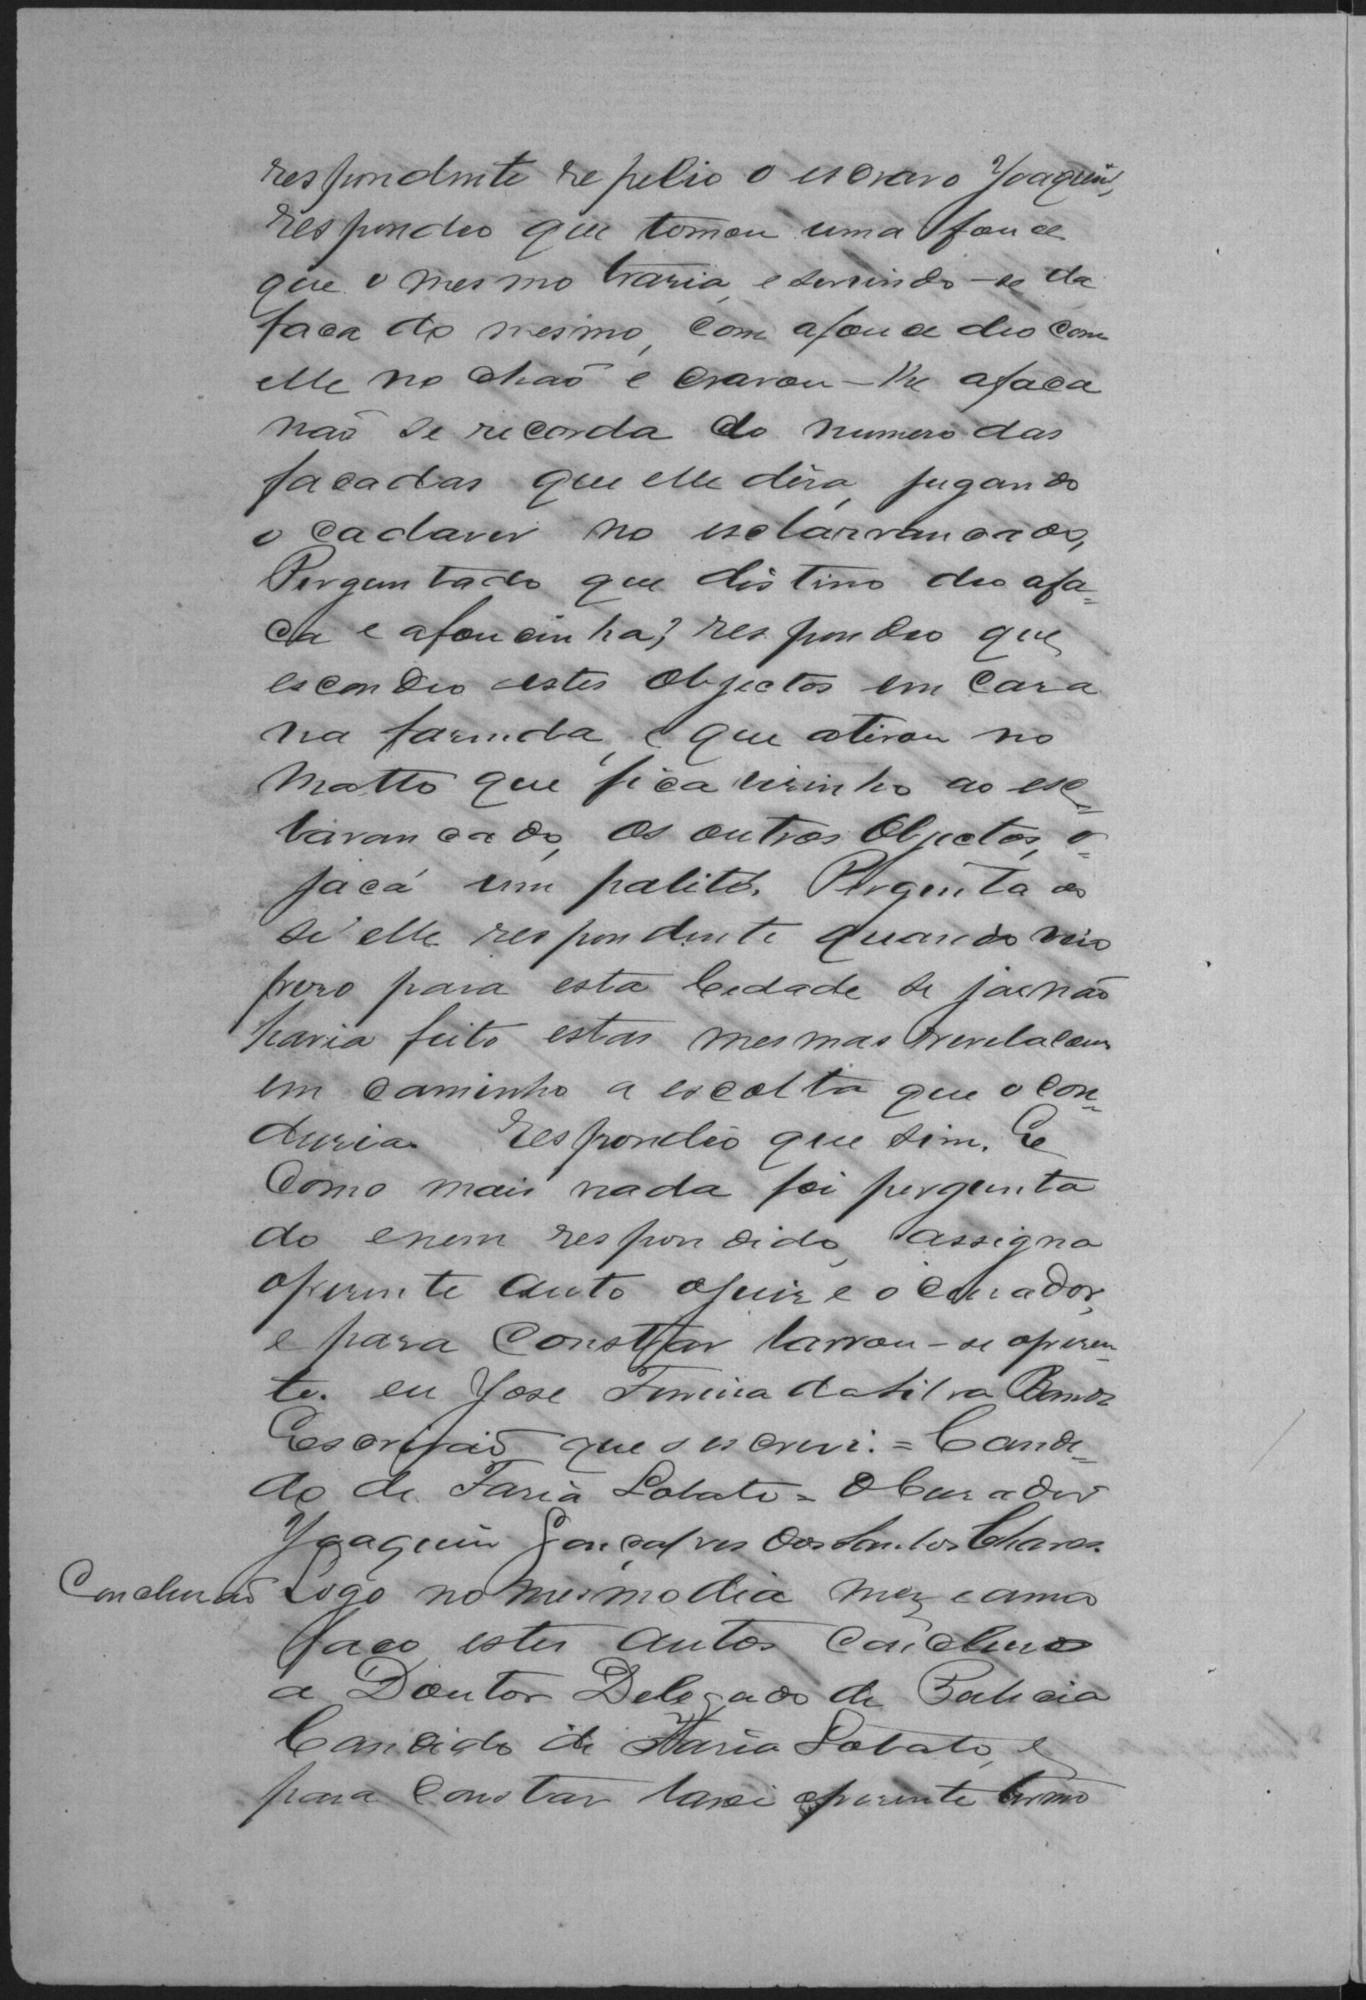 respondente repelio o escravo Joaquim,
respondeo que tomou uma fouce
que o mesmo trazia, e servindo-se da
faca do mesmo, com a fouce deo com
elle no chaõ e cravou-lhe a faca
naõ se recorda do numero das
facadas que elle déra, jugando
o cadaver no esbarrancado,
Perguntado que distino deo a fa=
ca e a foucinha; respondeo que
escondeo estes objectos em caza
na fazenda, e que atirou no
matto que fica vizinho ao es=
barancado, os outros objectos, o=
jacá um palitó. Perguntado
se elle respondente quando veio
prezo para esta Cidade se ja naõ
havia feito estas mesmas revelacoes
em caminho a escolta que o con=
duzia. Respondeo que sim. E
como mais nada foi pergunta
do e nem respondido, assigna
o prezente auto o juiz e o curador,
e para constar lavrou-se o prezen=
te. eu Jose Ferreira da Silva
Escrivaõ que o escrevi. = Candi=
do de Faria Lobato = O Curador
Joaquim Gonçalves dos Santos Chaves.
Concluzaõ Logo no mesmo dia mez e anno
faço estes autos concluzos
a Doutor Delegado de Policia
Candido de Faria Lobato, e
para constar lavrei o prezente termo